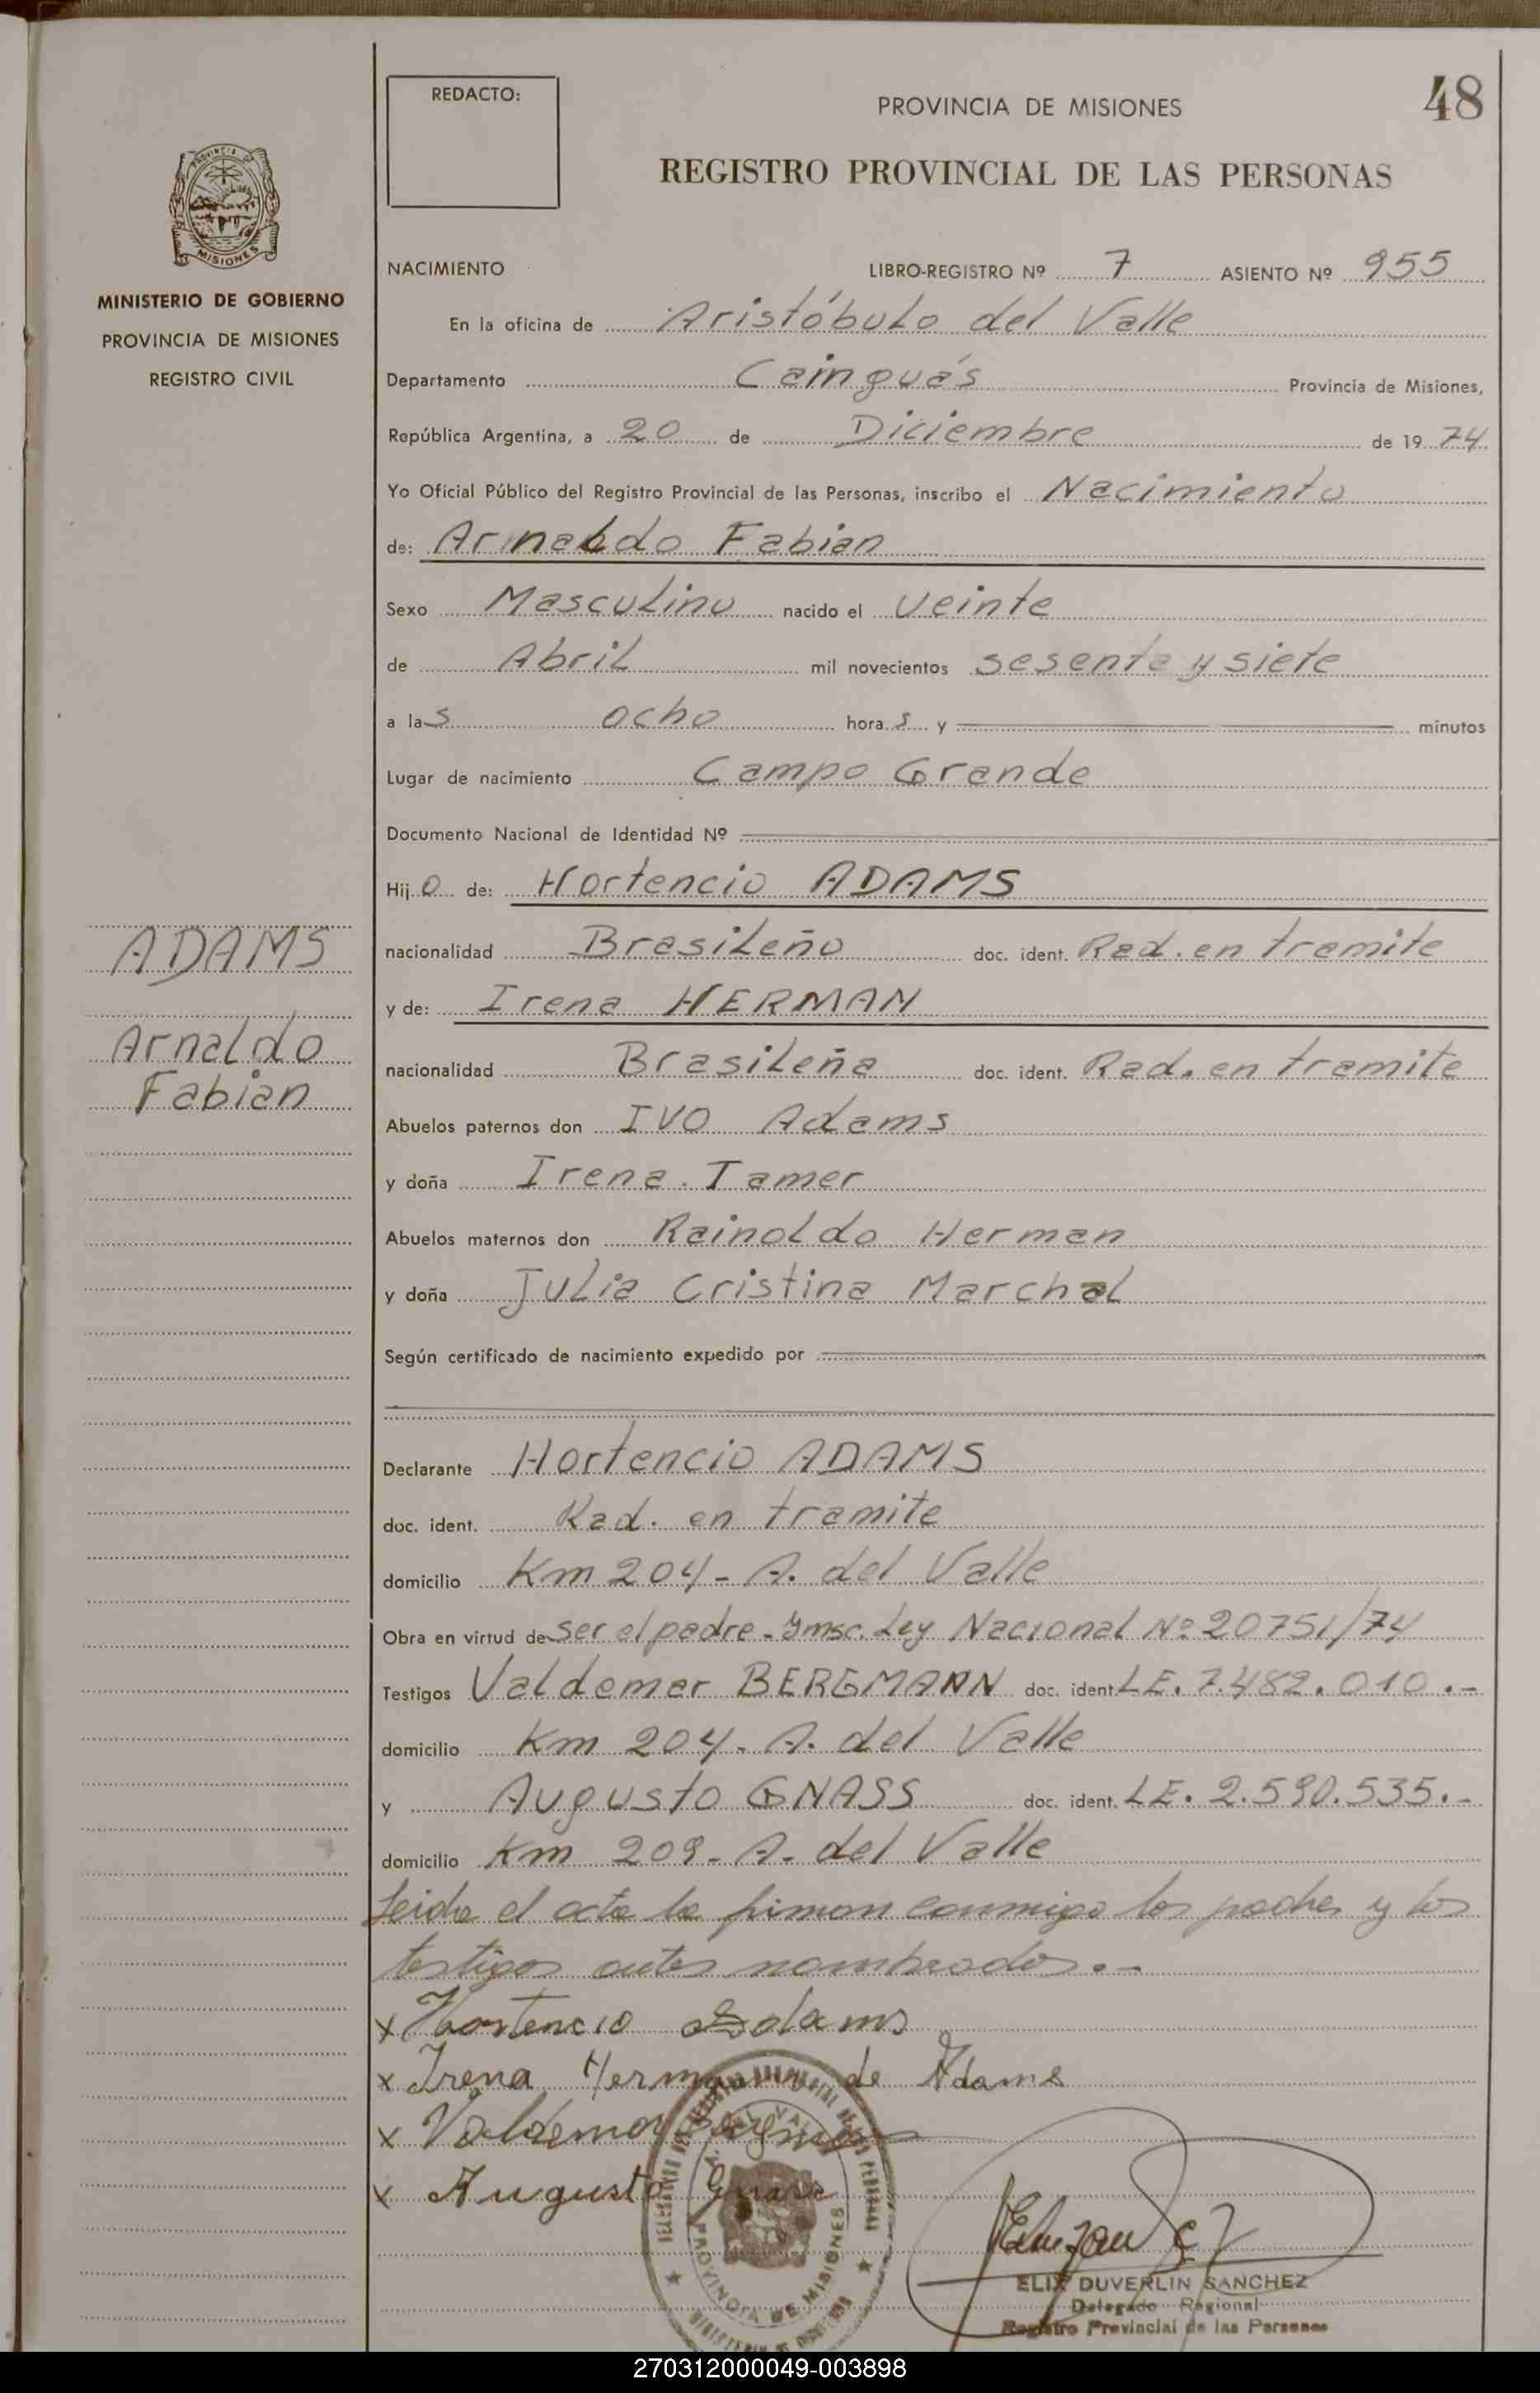 48
REDACTO:
PROVINCIA DE MISIONES
REGISTRO PROVINCIAL DE LAS PERSONAS
PROVINCIA DE
MISIONES
MINISTERIO DE GOBIERNO
PROVINCIA DE MISIONES
REGISTRO CIVIL
NACIMIENTO LIBRO-REGISTRO Nº 7 ASIENTO Nº 955
En la oficina de Aristóbulo del Valle
Departamento Cainguás Provincia de Misiones,
República Argentina, a 20 de Diciembre de 1974
Yo Oficial Público del Registro Provincial de las Personas, inscribo el Nacimiento
de: Arnaldo Fabian
Sexo Masculino nacido el veinte
de Abril mil novecientos sesenta y siete
a las ocho horas y minutos
Lugar de nacimiento Campo Grande
Documento Nacional de Identidad Nº
Hijo de: Hortencio ADAMS
nacionalidad Brasileño doc. ident. Rad. en tramite
y de: Irena HERMAN
nacionalidad Brasileña doc. ident. Rad. en tramite
Abuelos paternos don IVO Adams
y doña Irena Tamer
Abuelos maternos don Rainoldo Herman
y doña Julia Cristina Marchal
Según certificado de nacimiento expedido por
ADAMS
Arnaldo
Fabian
Declarante Hortencio ADAMS
doc. ident. Rad. en tramite
domicilio Km 204 - A. del Valle
Obra en virtud de ser el padre - Ymsc. Ley Nacional Nº 20751/74
Testigos Valdemar BERGMANN doc. ident. LE. 7.482.010.-
domicilio Km 204 - A. del Valle
y Augusto GNASS doc. ident. LE. 2.590.535.-
domicilio Km 209 - A. del Valle
Leida el acta la firman conmigo los padres y los
testigos antes nombrados.-
x Hortencio Adams
x Irena Hermann de Adams
x Valdemar
x Augusto Gnass
PROVINCIA DE MISIONES
ELIX DUVERLIN SANCHEZ
Delegado Regional
Registro Provincial de las Personas
270312000049-003898